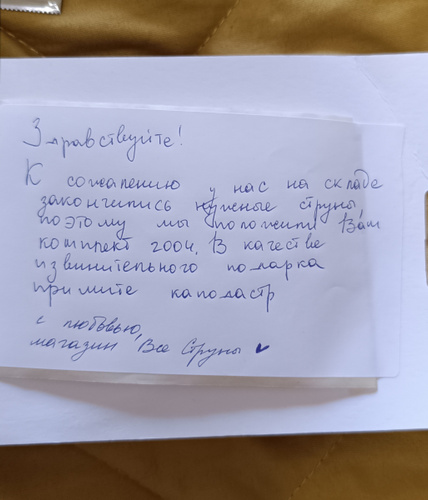 Здравствуйте!
К сожалению у нас на складе
закончились нужные струны
поэтому мы положили Вам
комплект 2004. В качестве
извинительного подарка
примите каподастр
с любовью,
магазин Все Струны